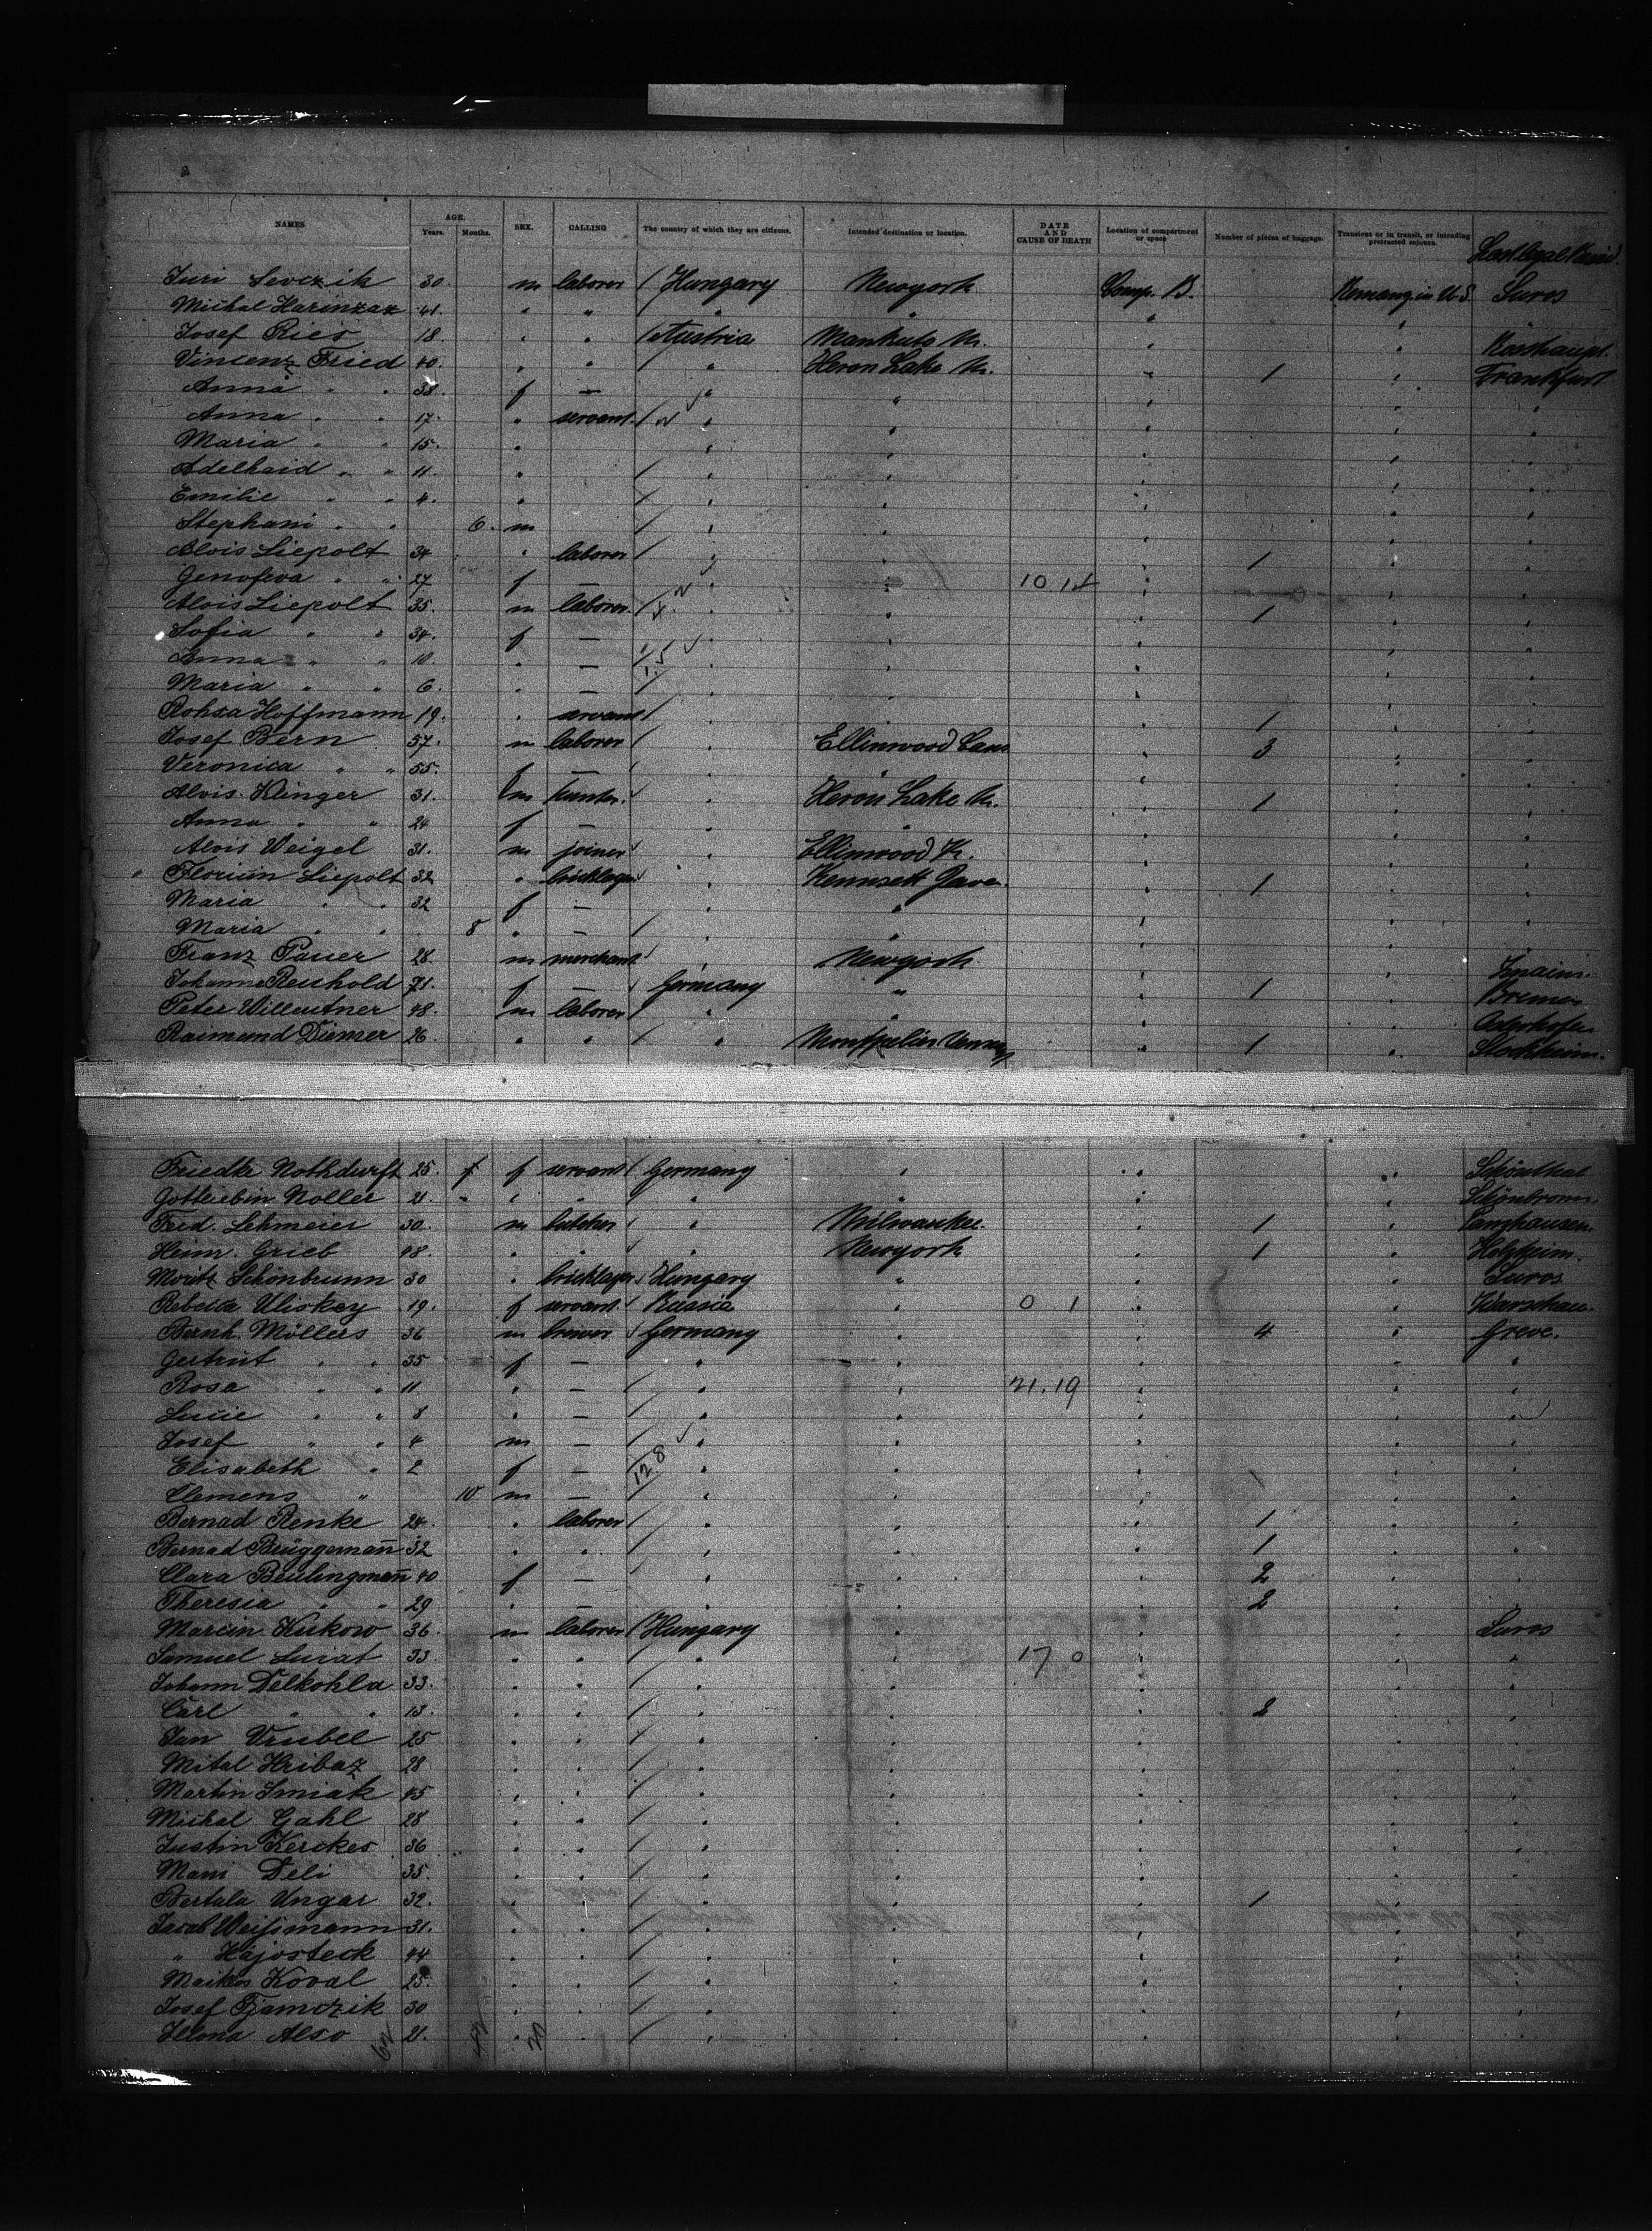 NAMES. AGE. Years. Months. SEX. CALLING The country of which they are citizens. Intended destination or location. DATE AND CAUSE OF DEATH Location of compartment or space Number of pieces of baggage. Transient or in transit, or intending protracted sojourn. Last legal
Juri Sevczik 30. m laborer Hungary Newyork Comp. B. in U.S. Suros
Michal Harinzak 41. " " " " " "
Josef Ries 18. " " Austria Mankato M. " "
Vincenz Fried 40. " " " Heron Lake M. " 1 " Frankfurt
Anna " " 38. f — " " " " "
Anna " " 17. " servant. " " " " "
Maria " " 15. " " " " " "
Adelhaid " " 11. " " " " " "
Emilie " " 4. " " " " " "
Stephani " " 6. m " " " " "
Alois Liepolt 34 " laborer " " " 1 " "
Genofeva " " 27 f — " " 10 14 " " "
Alois Liepolt 35. m laborer " " " 1 " "
Sofia " " 34. f — " " " " "
Anna " " 10. " — 1.5 " " " " "
Maria " " 6. " — " " " " "
Rohsa Hoffmann 19. " servant " " " 1 " "
Josef Bern 57. m laborer " Ellinwood Cans " 3 " "
Veronica " " 55. f — " " " " "
Alois Klinger 31. m hunter. " Heron Lake M. " 1 " "
Anna " " 24 f — " " " " "
Alois Weigel 31. m joiner " Ellinwood K. " " "
Florian Liepolt 32 " bricklayer " Kennsett " 1 " "
Maria " " 32 f — " " " " "
Maria " " 8 " — " " " " "
Franz Pauer 28. m merchant " Newyork " " Znaim.
Johanne Reuhold 71. f — Germany " " 1 " Bremen
Peter Willeutner 48. m laborer " " " " Osterhofen
Raimund Diemer 26. " " " Montpelier " 1 " Stockheim.
Friedke Nothdurft 25. f f servant Germany " " " Schönthal
Gottliebin Noller 21. " " " " " " " Schönbronn.
Ferd. Lehmeier 30. m butcher " Milwaukee. " 1 "
Heinr. Grieb 48. " " " Newyork " 1 " Holzheim.
Moritz Schönbrunn 30 " bricklayer Hungary " " " Suros
Rebecka Uliskey 19. f servant. Russia " 0 1 " " Warschau.
Bernh. Möllers 36 m brewer Germany " " 4 " Greve.
Gertrut " " 35 f — " " " " "
Rosa " " 11 " — " " 21.19 " " "
Lucie " " 8 " — " " " " "
Josef " " 4 m — " " " " "
Elisabeth " 2 f — 128 " " " " "
Clemens " 10 m — " " " " "
Bernad Renke 24. " laborer " " " 1 " "
Bernad Brüggemañ 32 " " " " " 1 " "
Clara Beulingmañ 40 f — " " " 2 " "
Theresia " " 29 " — " " " 2 " "
Marcin Kukow 36. m laborer Hungary " " " Suros
Samuel Lucat 33. " " " " 17 0 " " "
Johann Delkohla 33. " " " " " " "
Carl " " 13. " " " " " 2 " "
Jan Vrubel 25 " " " " " " "
Mital Hribaz 28 " " " " " " "
Martin Smiak 45 " " " " " " "
Michal Gahl 28 " " " " " " "
Justin Kerekes 36 " " " " " " "
Mani Deli 35. " " " " " " "
Bertala Ungar 32. " " " " " 1 " "
Jacob Weissmann 31. " " " " " " "
" Hajosteck 44 " " " " " " "
Maikos Koval 25. " " " " " " "
Josef Tjamczik 30 " " " " " " "
Ilona Also 21. " " " " " " "
62 42 20